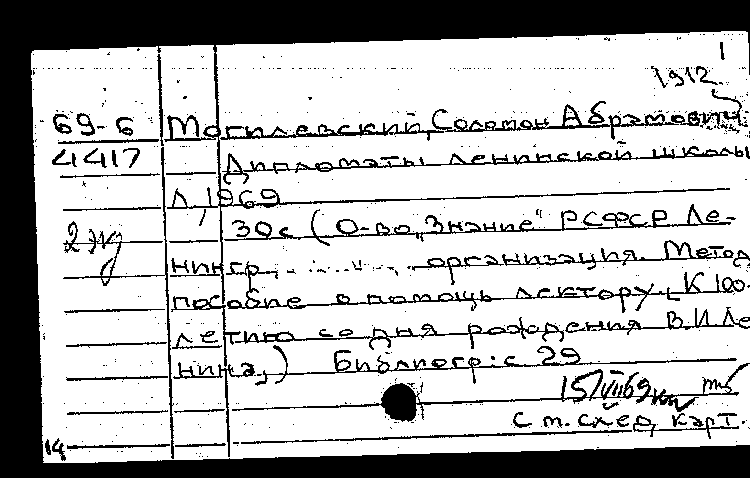 1
1912
69-6 Могилевский, Соломон Абрамович
4417 Дипломаты ленинской школы
Л, 1969
2 экз 30с (О-во „Знание" РСФСР Ле-
нингр. организация. Метод
пособие в помощь лектору. К 100-
летию со дня рождения В.И Ле
нина,) Библиогр: с 29
15/VII 69
См. след. карт.
14